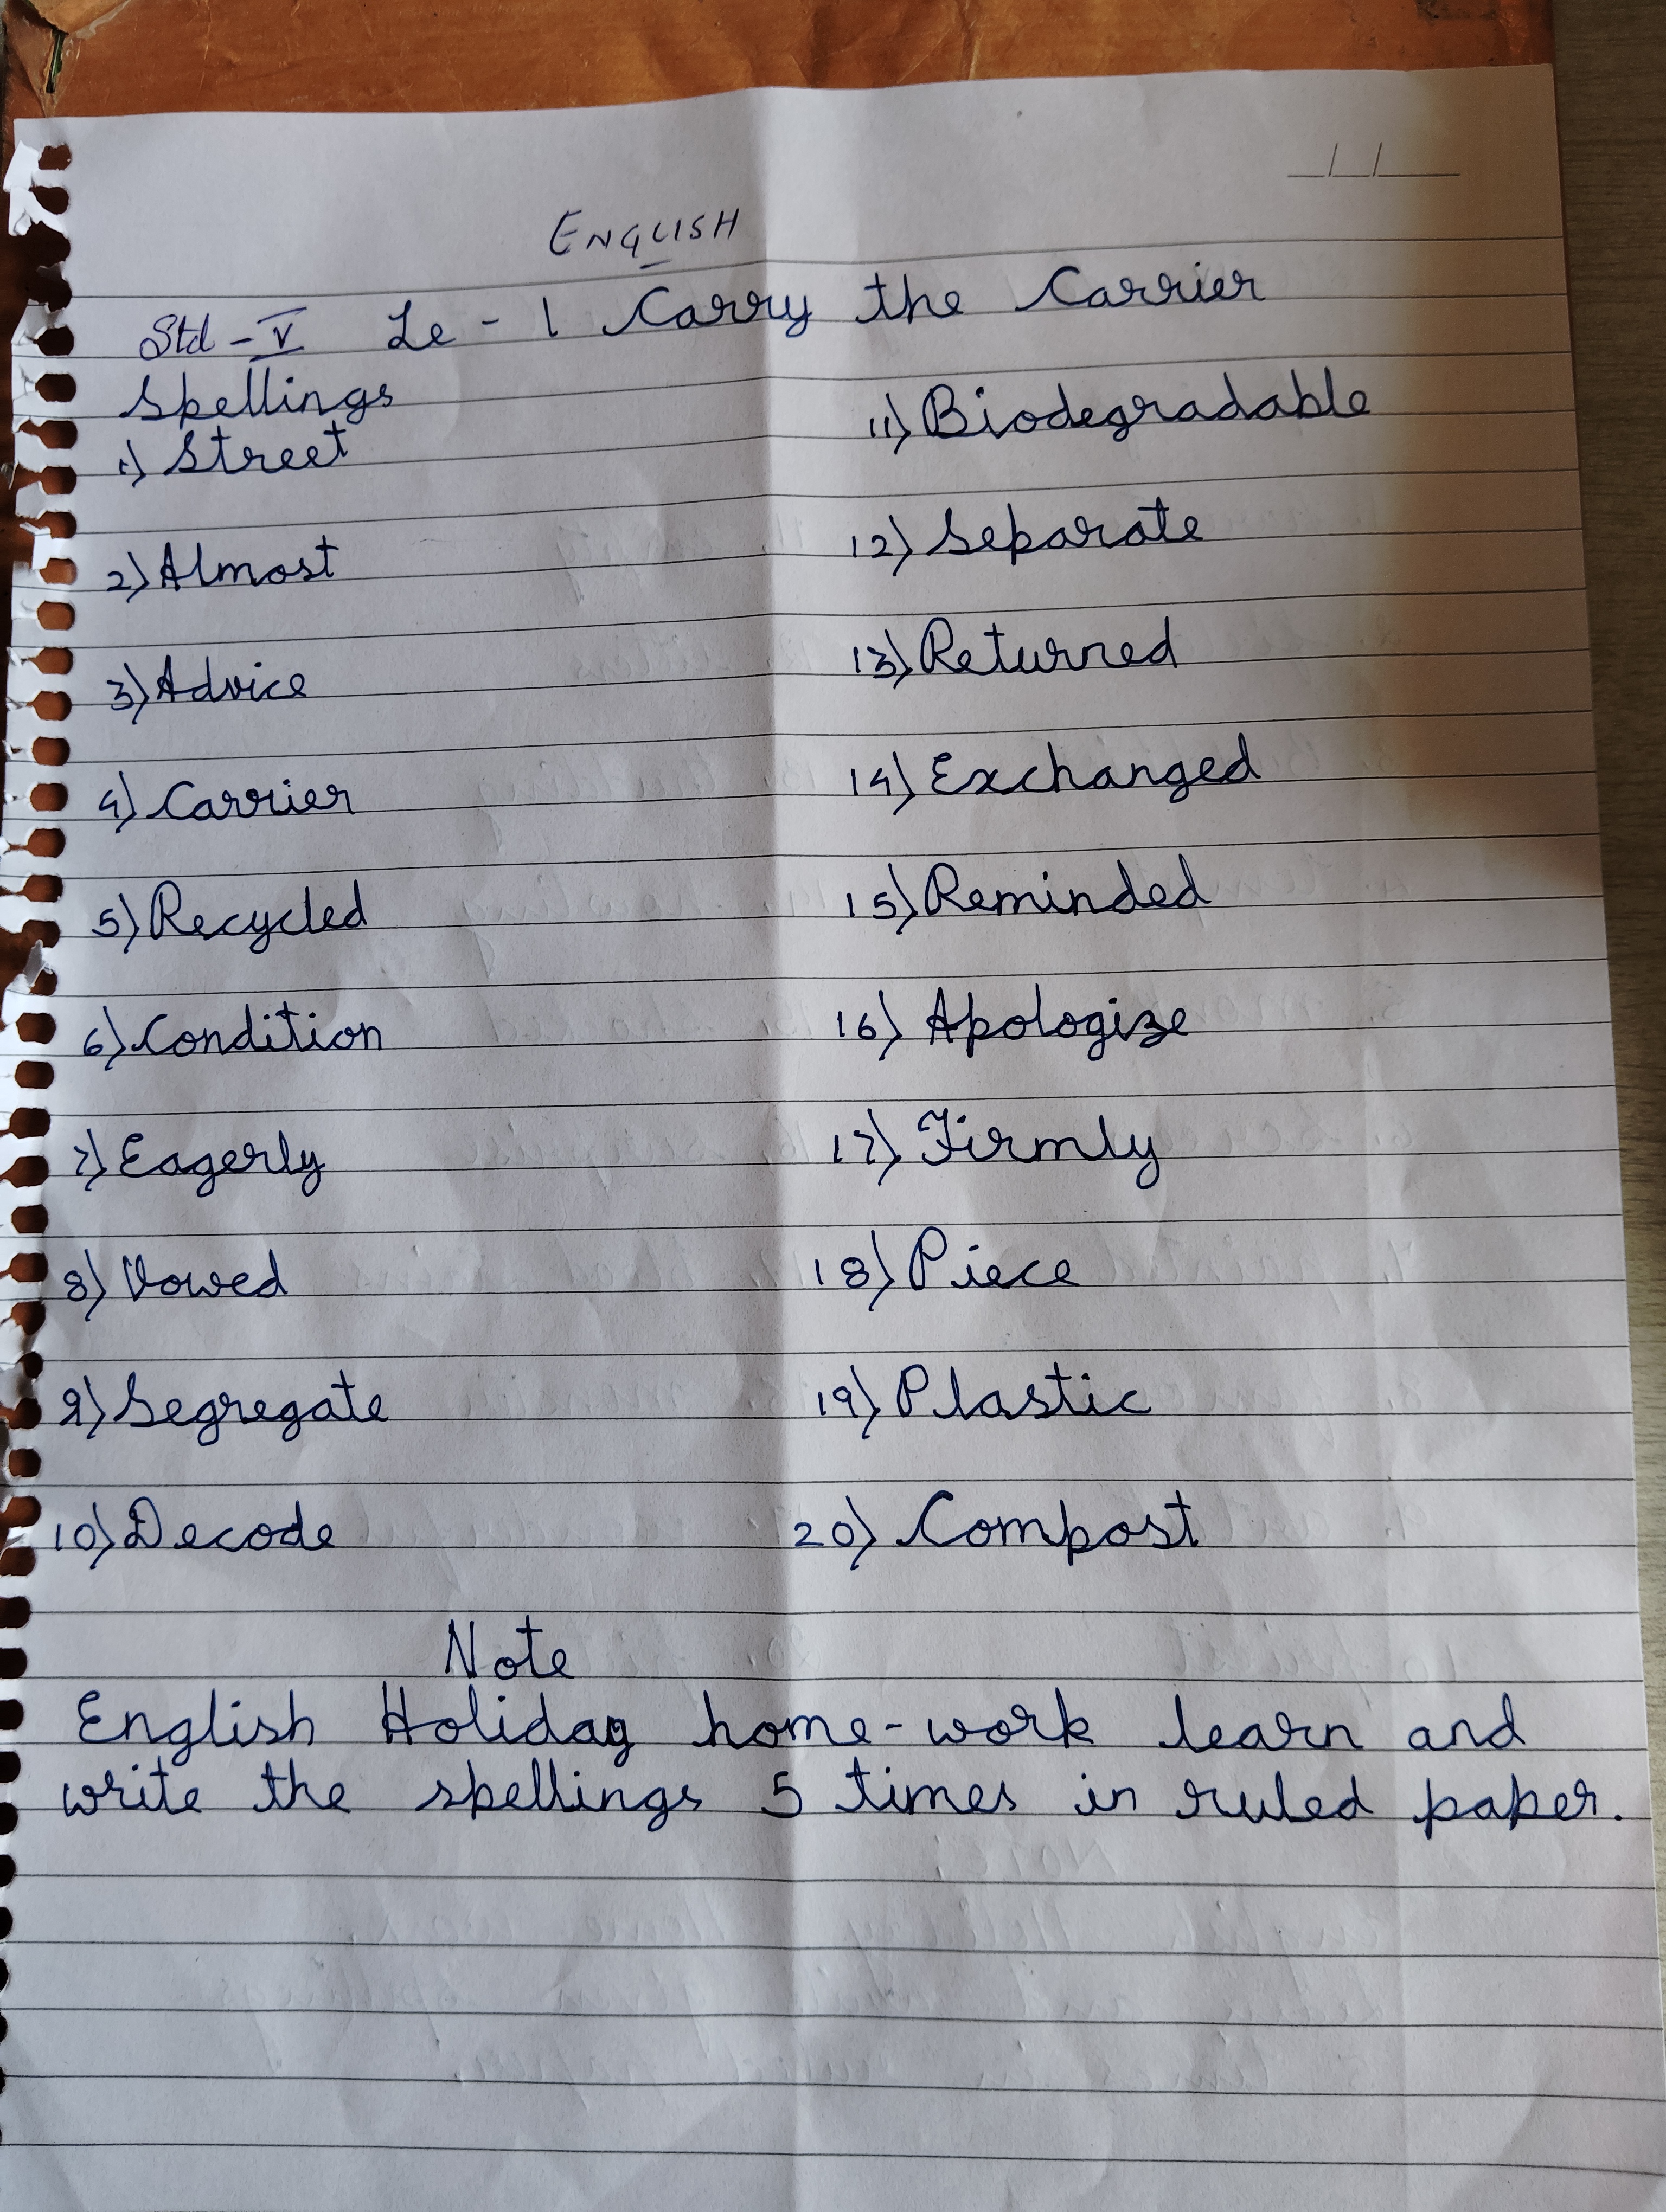 ENGLISH
Std - V Le - 1 Carry the Carrier
Spellings
1) Street
2) Almost
3) Advice
4) Carrier
5) Recycled
6) Condition
7) Eagerly
8) Vowed
9) Segregate
10) Decode
11) Biodegradable
12) Separate
13) Returned
14) Exchanged
15) Reminded
16) Apologize
17) Firmly
18) Piece
19) Plastic
20) Compost
Note
English Holiday home-work learn and
write the spellings 5 times in ruled paper.